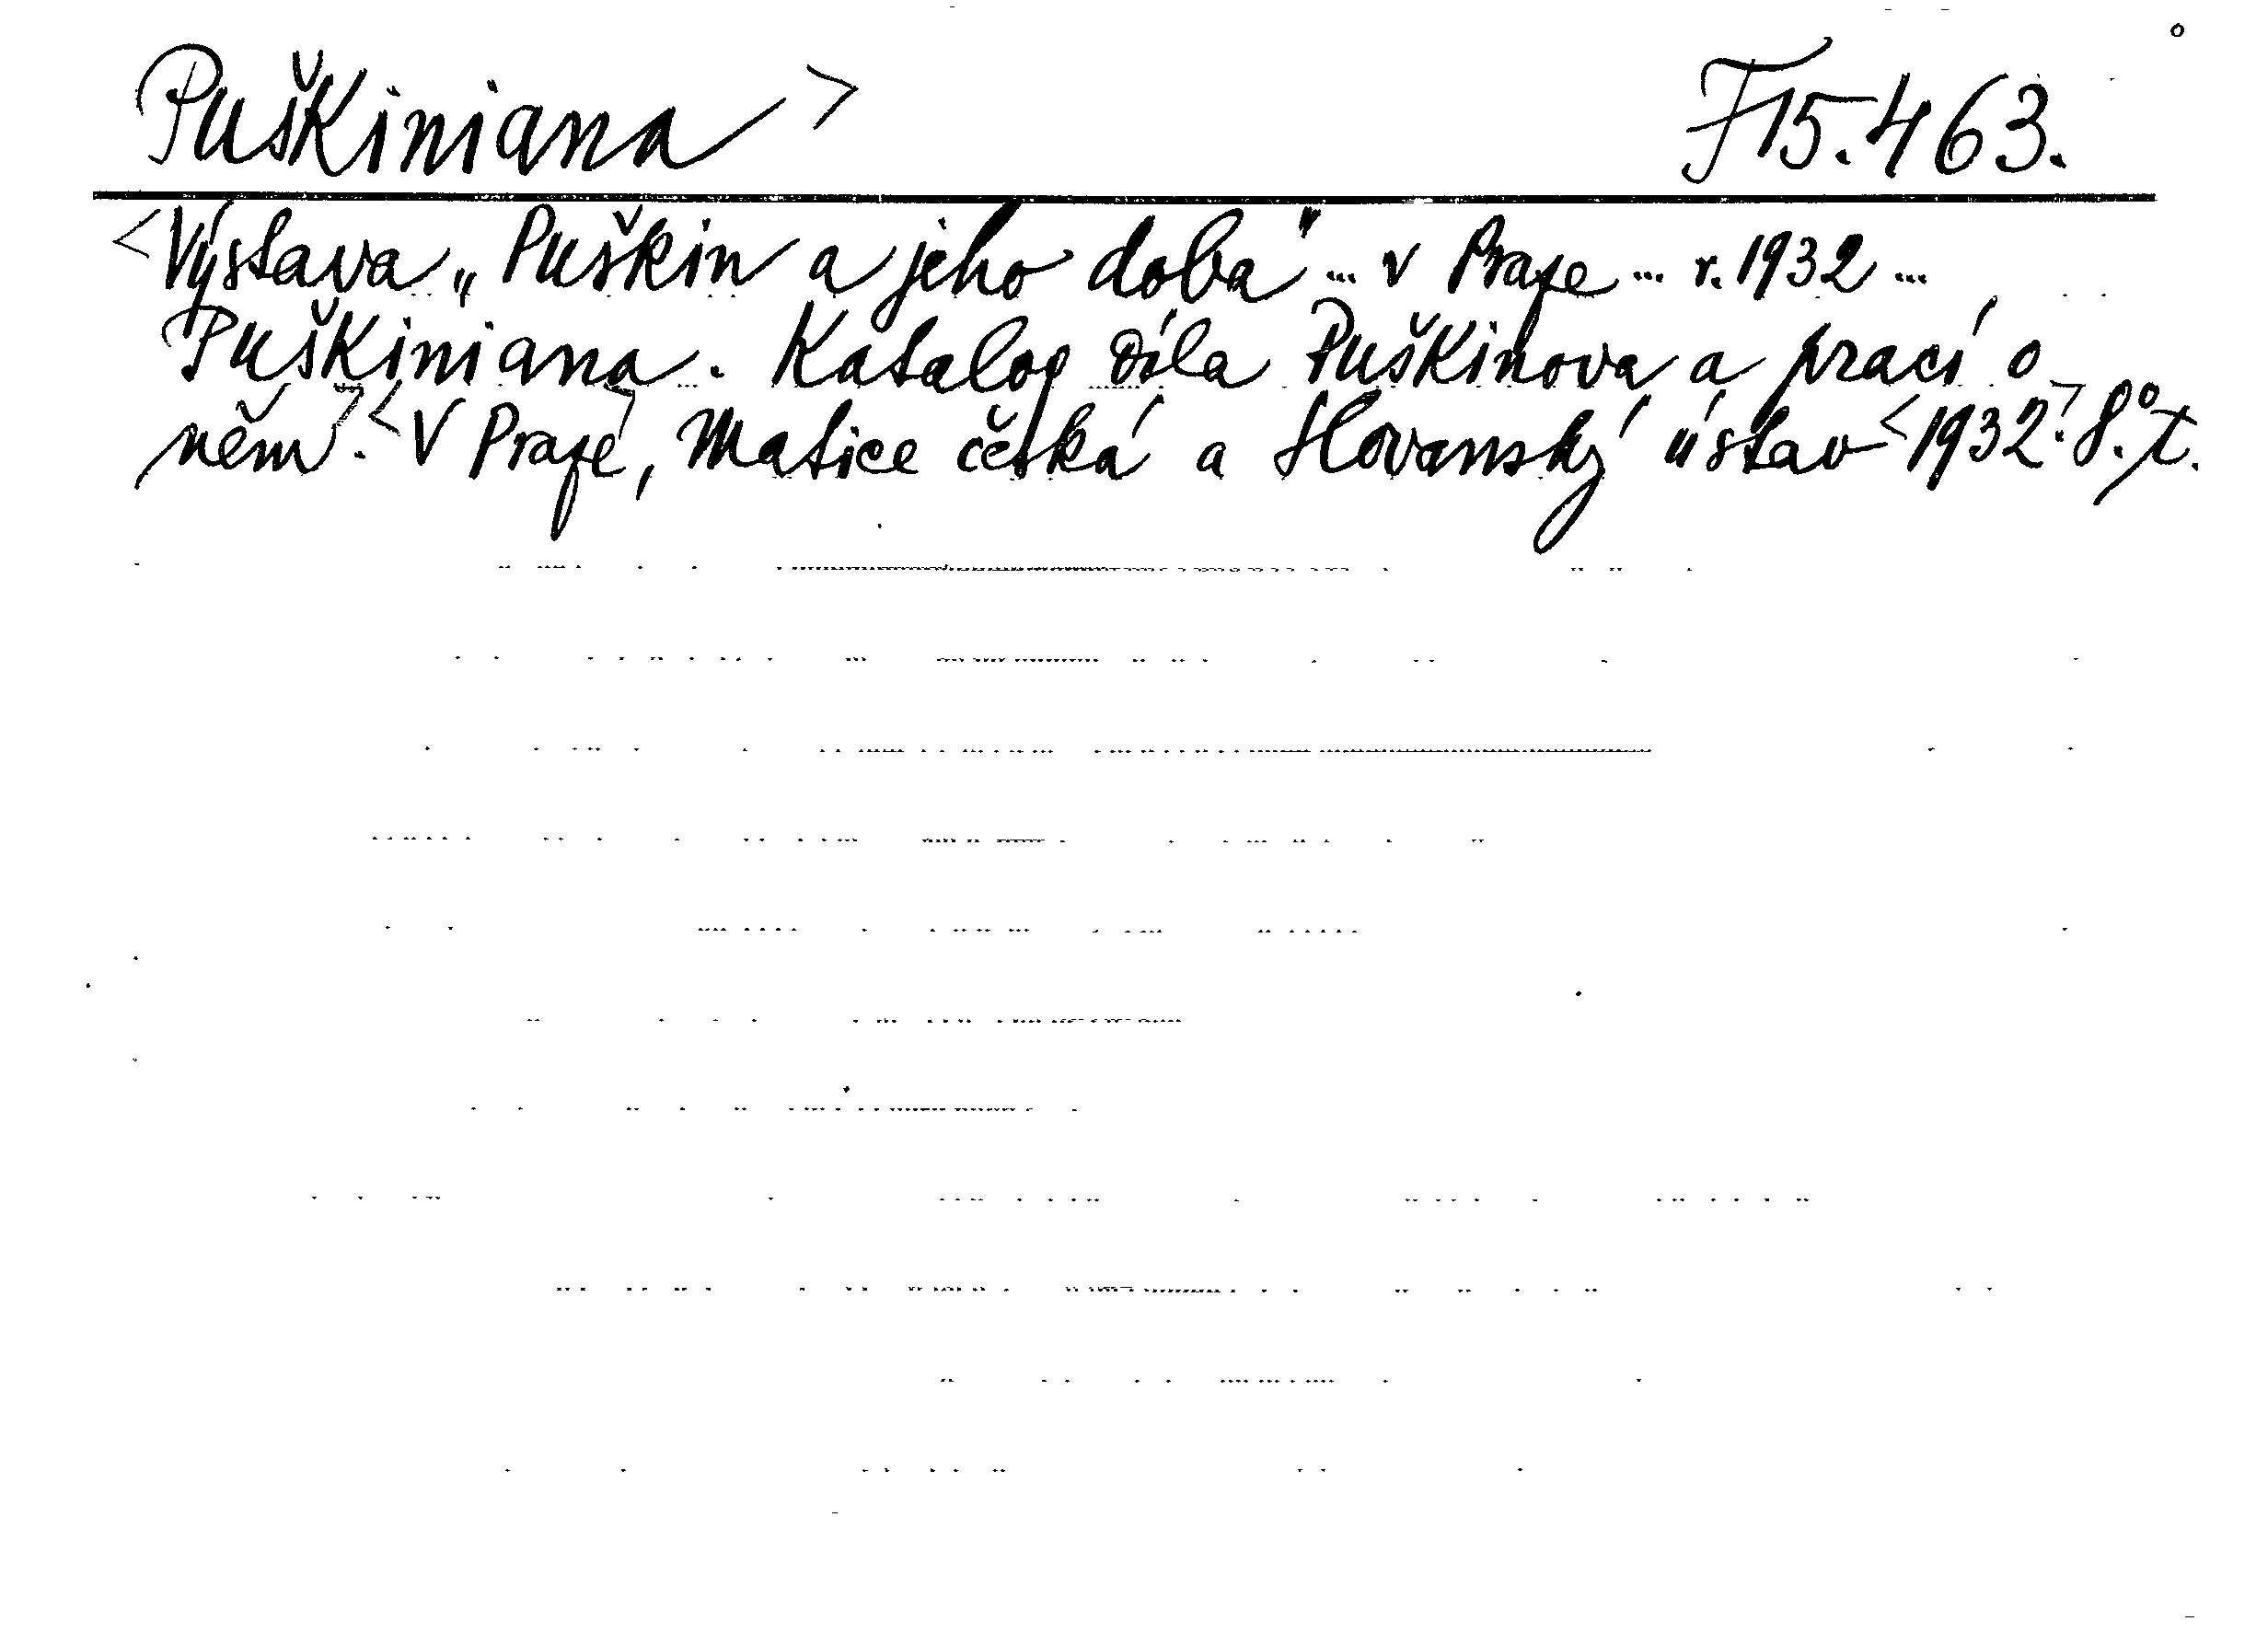 Puškiniana > F 15.463.
<Výstava „Puškin a jeho doba" ... v Praze ... r. 1932 ...
Puškiniana. Katalog díla Puškinova a prací o
něm>. <V Praze>, Matice česká a Slovanský ústav <1932>. 8° t.